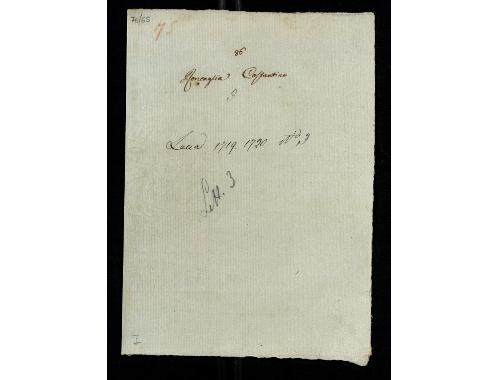 76/55
75
86
Roncaglia Costantino
3
Lucca 1719. 1720 N.º 3
Lett. 3
I